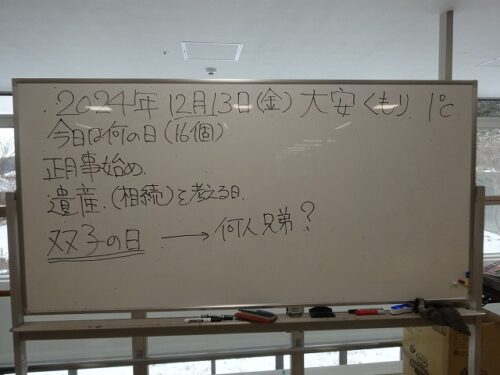 2024年12月13日(金) 大安 くもり 1℃
今日は何の日(16個)
正月事始め.
遺産.(相続)を考える日.
双子の日 → 何人兄弟?